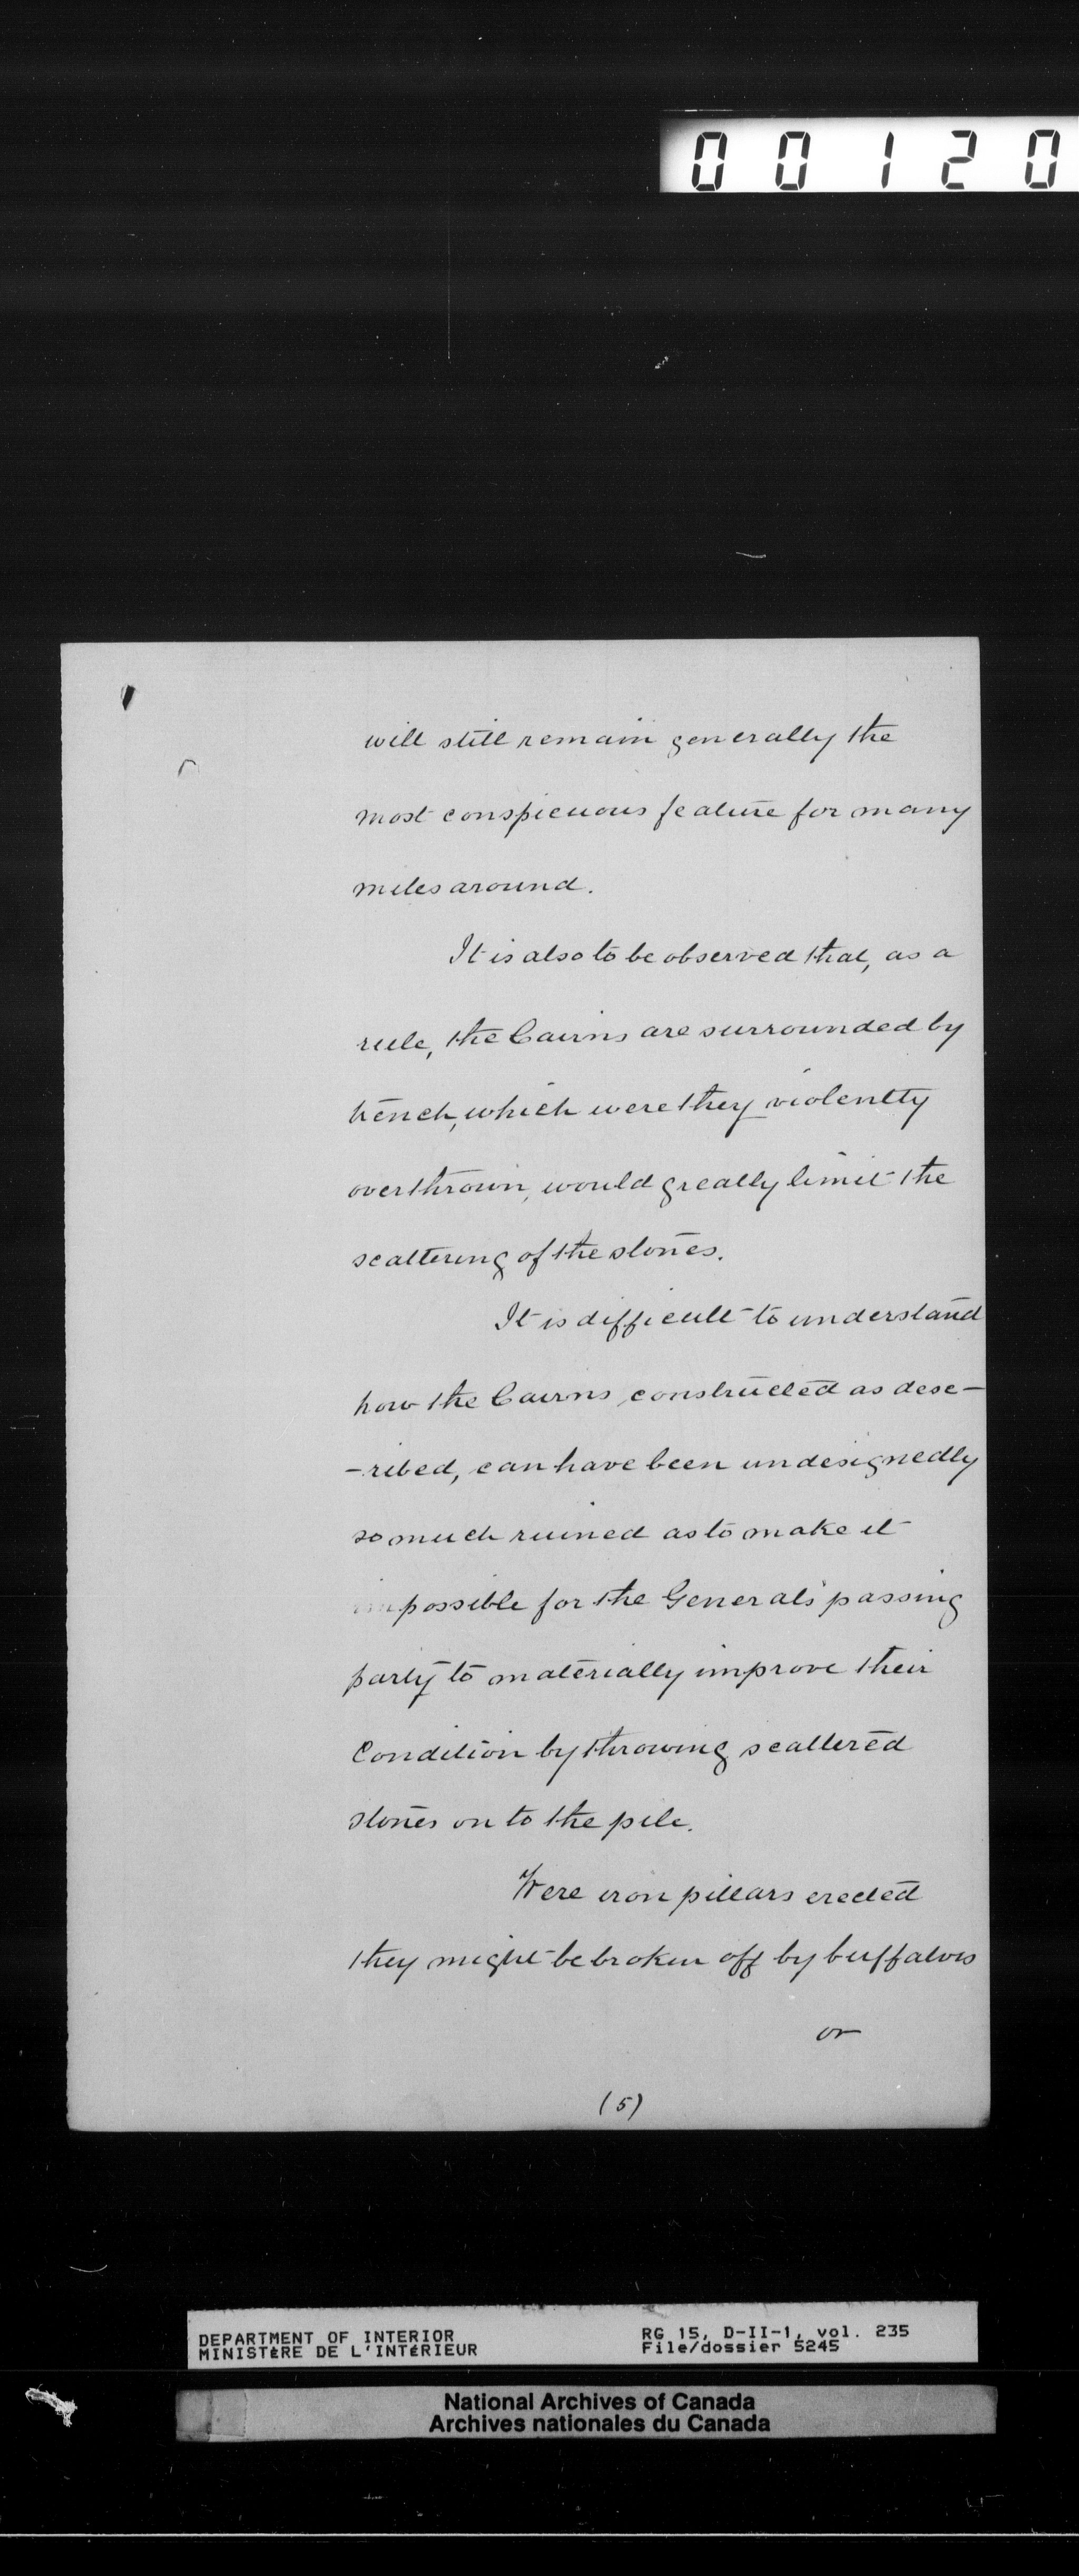 00120
will still remain generally the
most conspicuous feature for many
miles around.
It is also to be observed that, as a
rule, the Cairns are surrounded by
trench, which were they violently
overthrown, would greatly limit the
scattering of the stones.
It is difficult to understand
how the Cairns, constructed as desc-
-ribed, can have been undesignedly
so much ruined as to make it
impossible for the General's passing
party to materially improve their
Condition by throwing scattered
stones on to the pile.
Were iron pillars erected
they might be broken off by buffaloes
or
(5)
DEPARTMENT OF INTERIOR
MINISTÈRE DE L'INTÉRIEUR
RG 15, D-II-1, vol. 235
File/dossier 5245
National Archives of Canada
Archives nationales du Canada